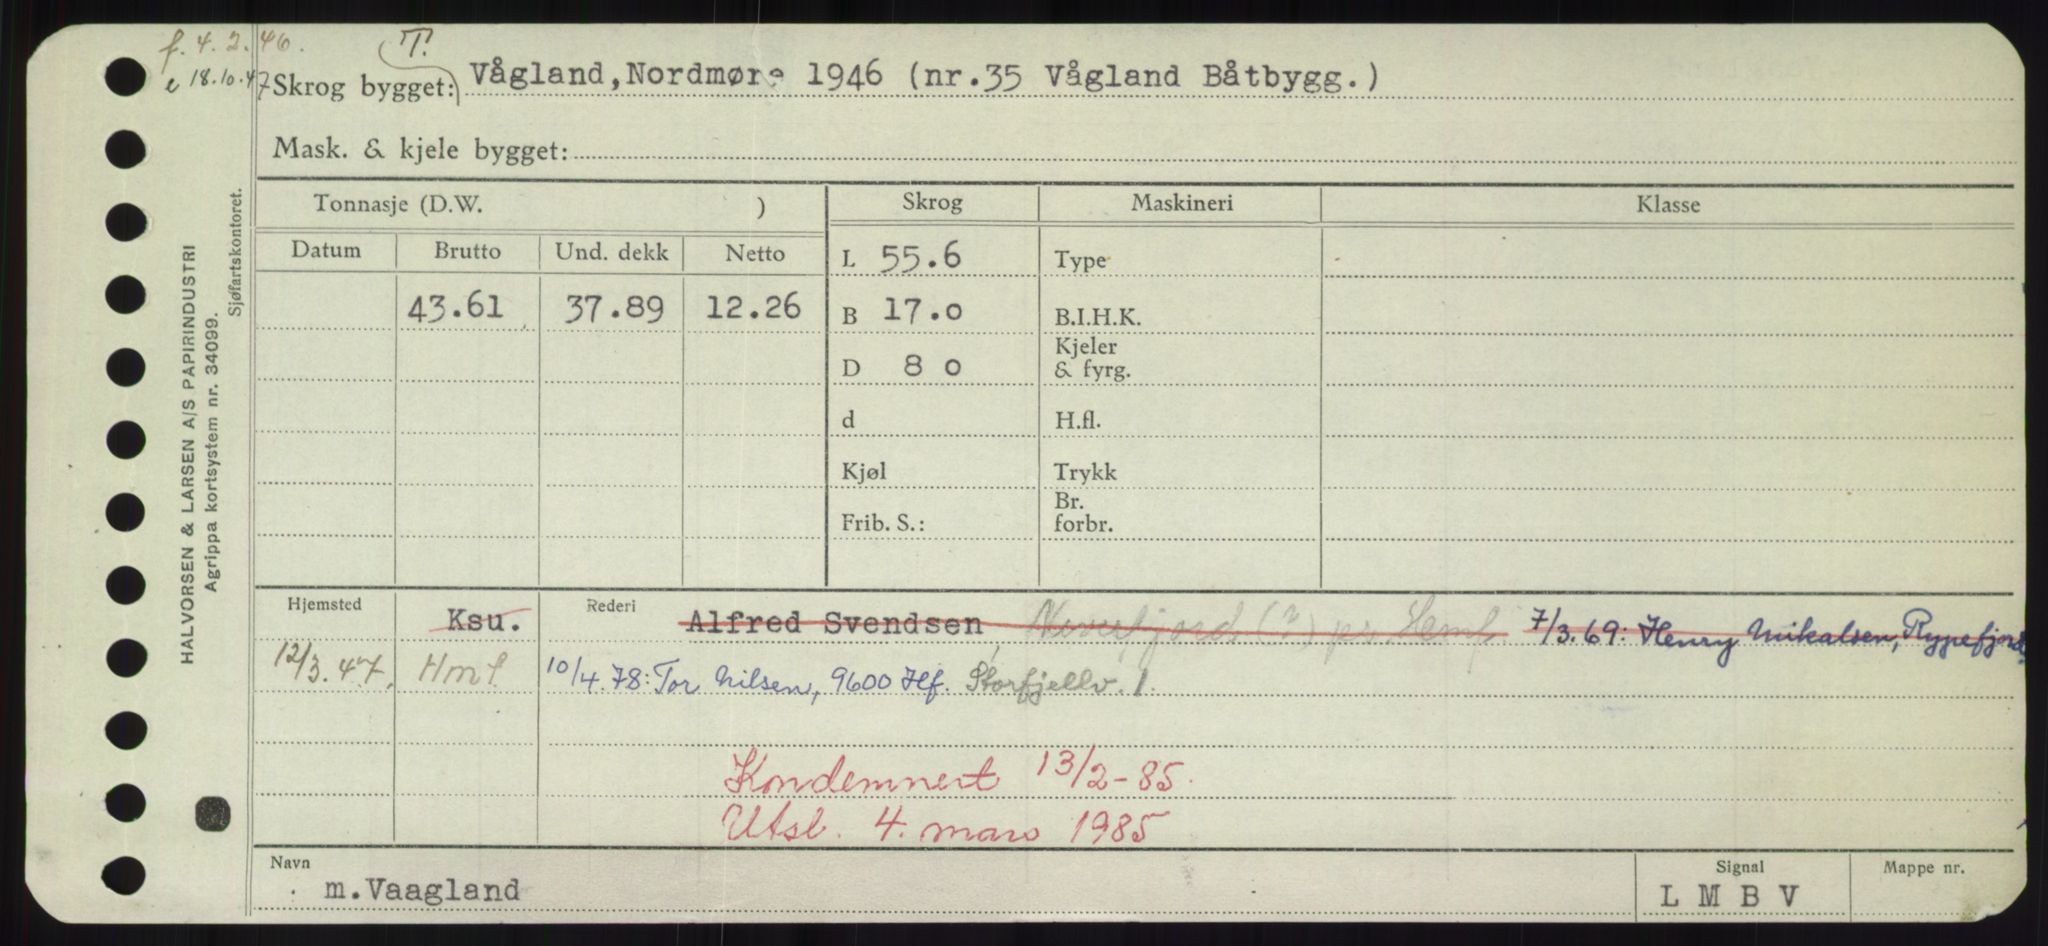 f. 4. 2. 46.
T.
e 18.10.47
Skrog bygget: Vågland, Nordmøre 1946 (nr.35 Vågland Båtbygg.)
Mask. & kjele bygget:
Tonnasje (D.W. ) Skrog Maskineri Klasse
Datum Brutto Und. dekk Netto L 55.6 Type
43.61 37.89 12.26 B 17.0 B.I.H.K.
D 8 0 Kjeler & fyrg.
d H.fl.
Kjøl Trykk
Frib. S.: Br. forbr.
Hjemsted Ksu. Rederi Alfred Svendsen, pr. Hemf. 7/3.69: Henry Mikalsen, Rypefjord
12/3.47. Hmf 10/4.78: Tor Nilsen, 9600 Hf. Storfjellv. 1.
Kondemnert 13/2-85.
Utsl. 4. mars 1985
Navn Signal Mappe nr.
m.Vaagland L M B V
HALVORSEN & LARSEN A/S PAPIRINDUSTRI
Agrippa kortsystem nr. 34099.
Sjøfartskontoret.